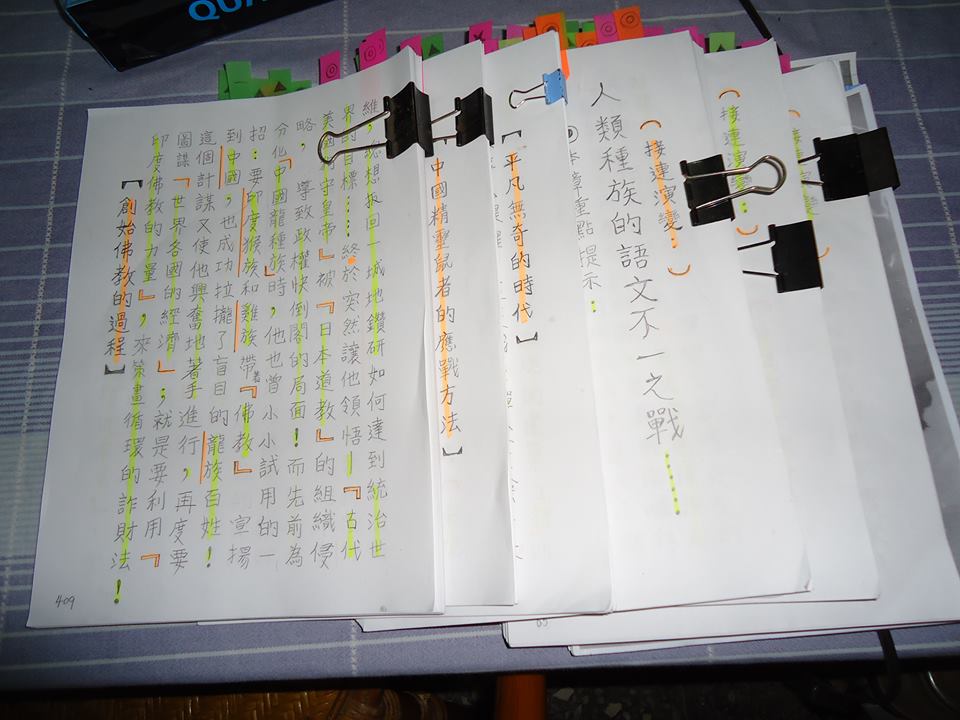 維，想扳回一城地鑽研如何達到統治世
界的目標……終於突然讓他領悟—『古代
美國守皇帝』被『日本道教』的組織侵
略，導致政權快倒閣的局面！而先前為
分化『中國龍種族』時，他也曾小小試用的一
招：要印度猴族和雞族帶著『佛教』宣揚
到中國，也成功拉攏了盲目的龍族百姓！
這個計謀又使他興奮地著手進行，再度要
圖謀『世界各國的經濟』；就是要利用『
印度佛教的力量』，來策畫循環的詐財法！
【創始佛教的過程】
409
中國精靈鼠者的應戰方法】
【平凡無奇的時代】
（接連演變…）
人類種族的語文不一之戰……
本章重點提示：
（接連演變
QUA